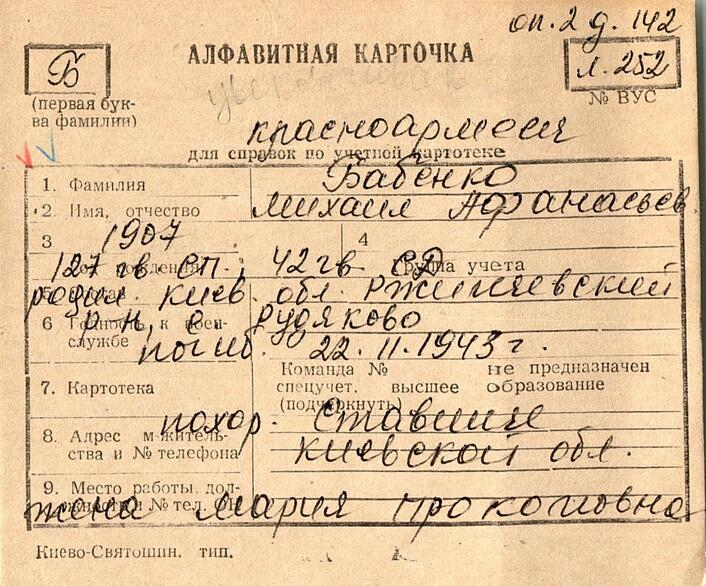 оп. 2 д. 142
Б
АЛФАВИТНАЯ КАРТОЧКА
л. 252
(первая бук-
ва фамилии)
№ ВУС
красноармеец
для справок по учетной картотеке
1. Фамилия Бабенко
2. Имя, отчество Михаил Афанасьев
3 1907 4
Год рождения Группа учета
127 гв СП, 42 гв. СД
родил. Киев. обл. Ржищевский
6 Годность к воен-
службе
р-н, с. Рудяково
погиб. 22.11.1943 г.
Команда № не предназначен
спецучет, высшее образование
(подчеркнуть)
7. Картотека
похор. Ставище
8. Адрес м-жительства и № телефона
Киевской обл.
9. Место работы, дол-
жность и № тел.
жена Мария Прокоповна
Киево-Святошин. тип.